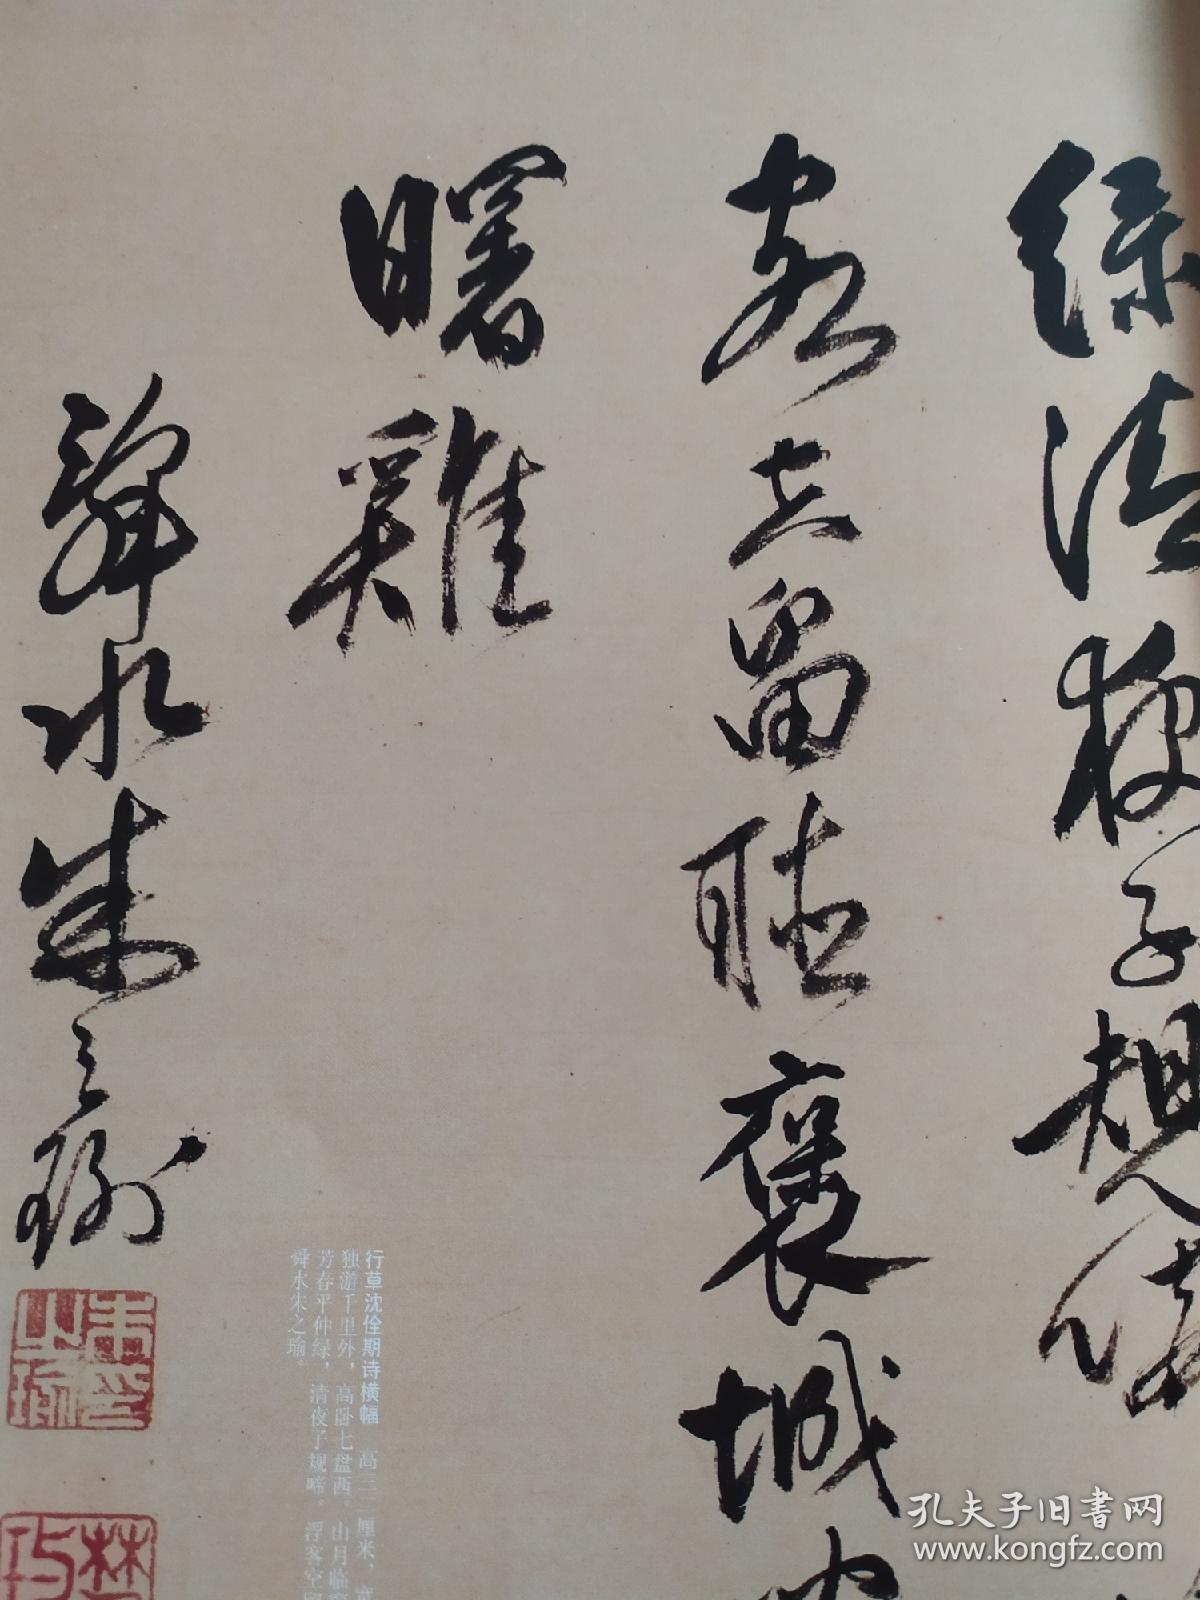 绿清夜子規啼
客空留聴褒城聞
曙雞
舜水朱之瑜
朱之瑜印
行草沈佺期诗横幅 高三二厘米，宽
独游千里外，高卧七盘西。山月临窗
芳春平仲绿，清夜子规啼。浮客空留
舜水朱之瑜。
孔夫子旧书网
www.kongfz.com